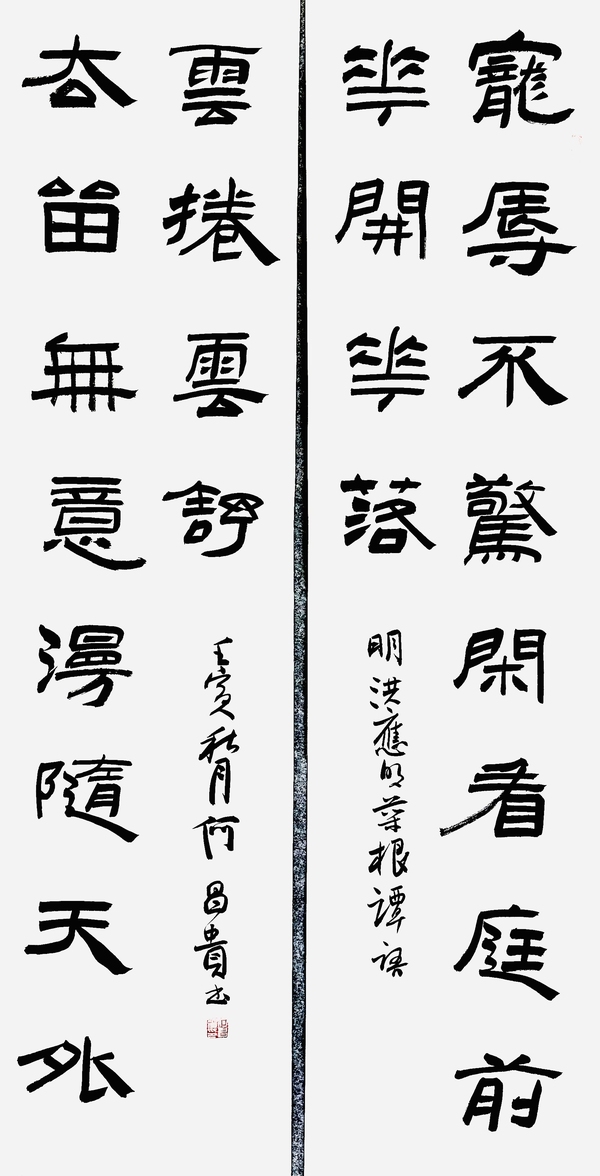 寵辱不驚閑看庭前
華開華落
明洪應明菜根譚語
去留無意漫隨天外
雲捲雲舒
壬寅秋月何昌貴书